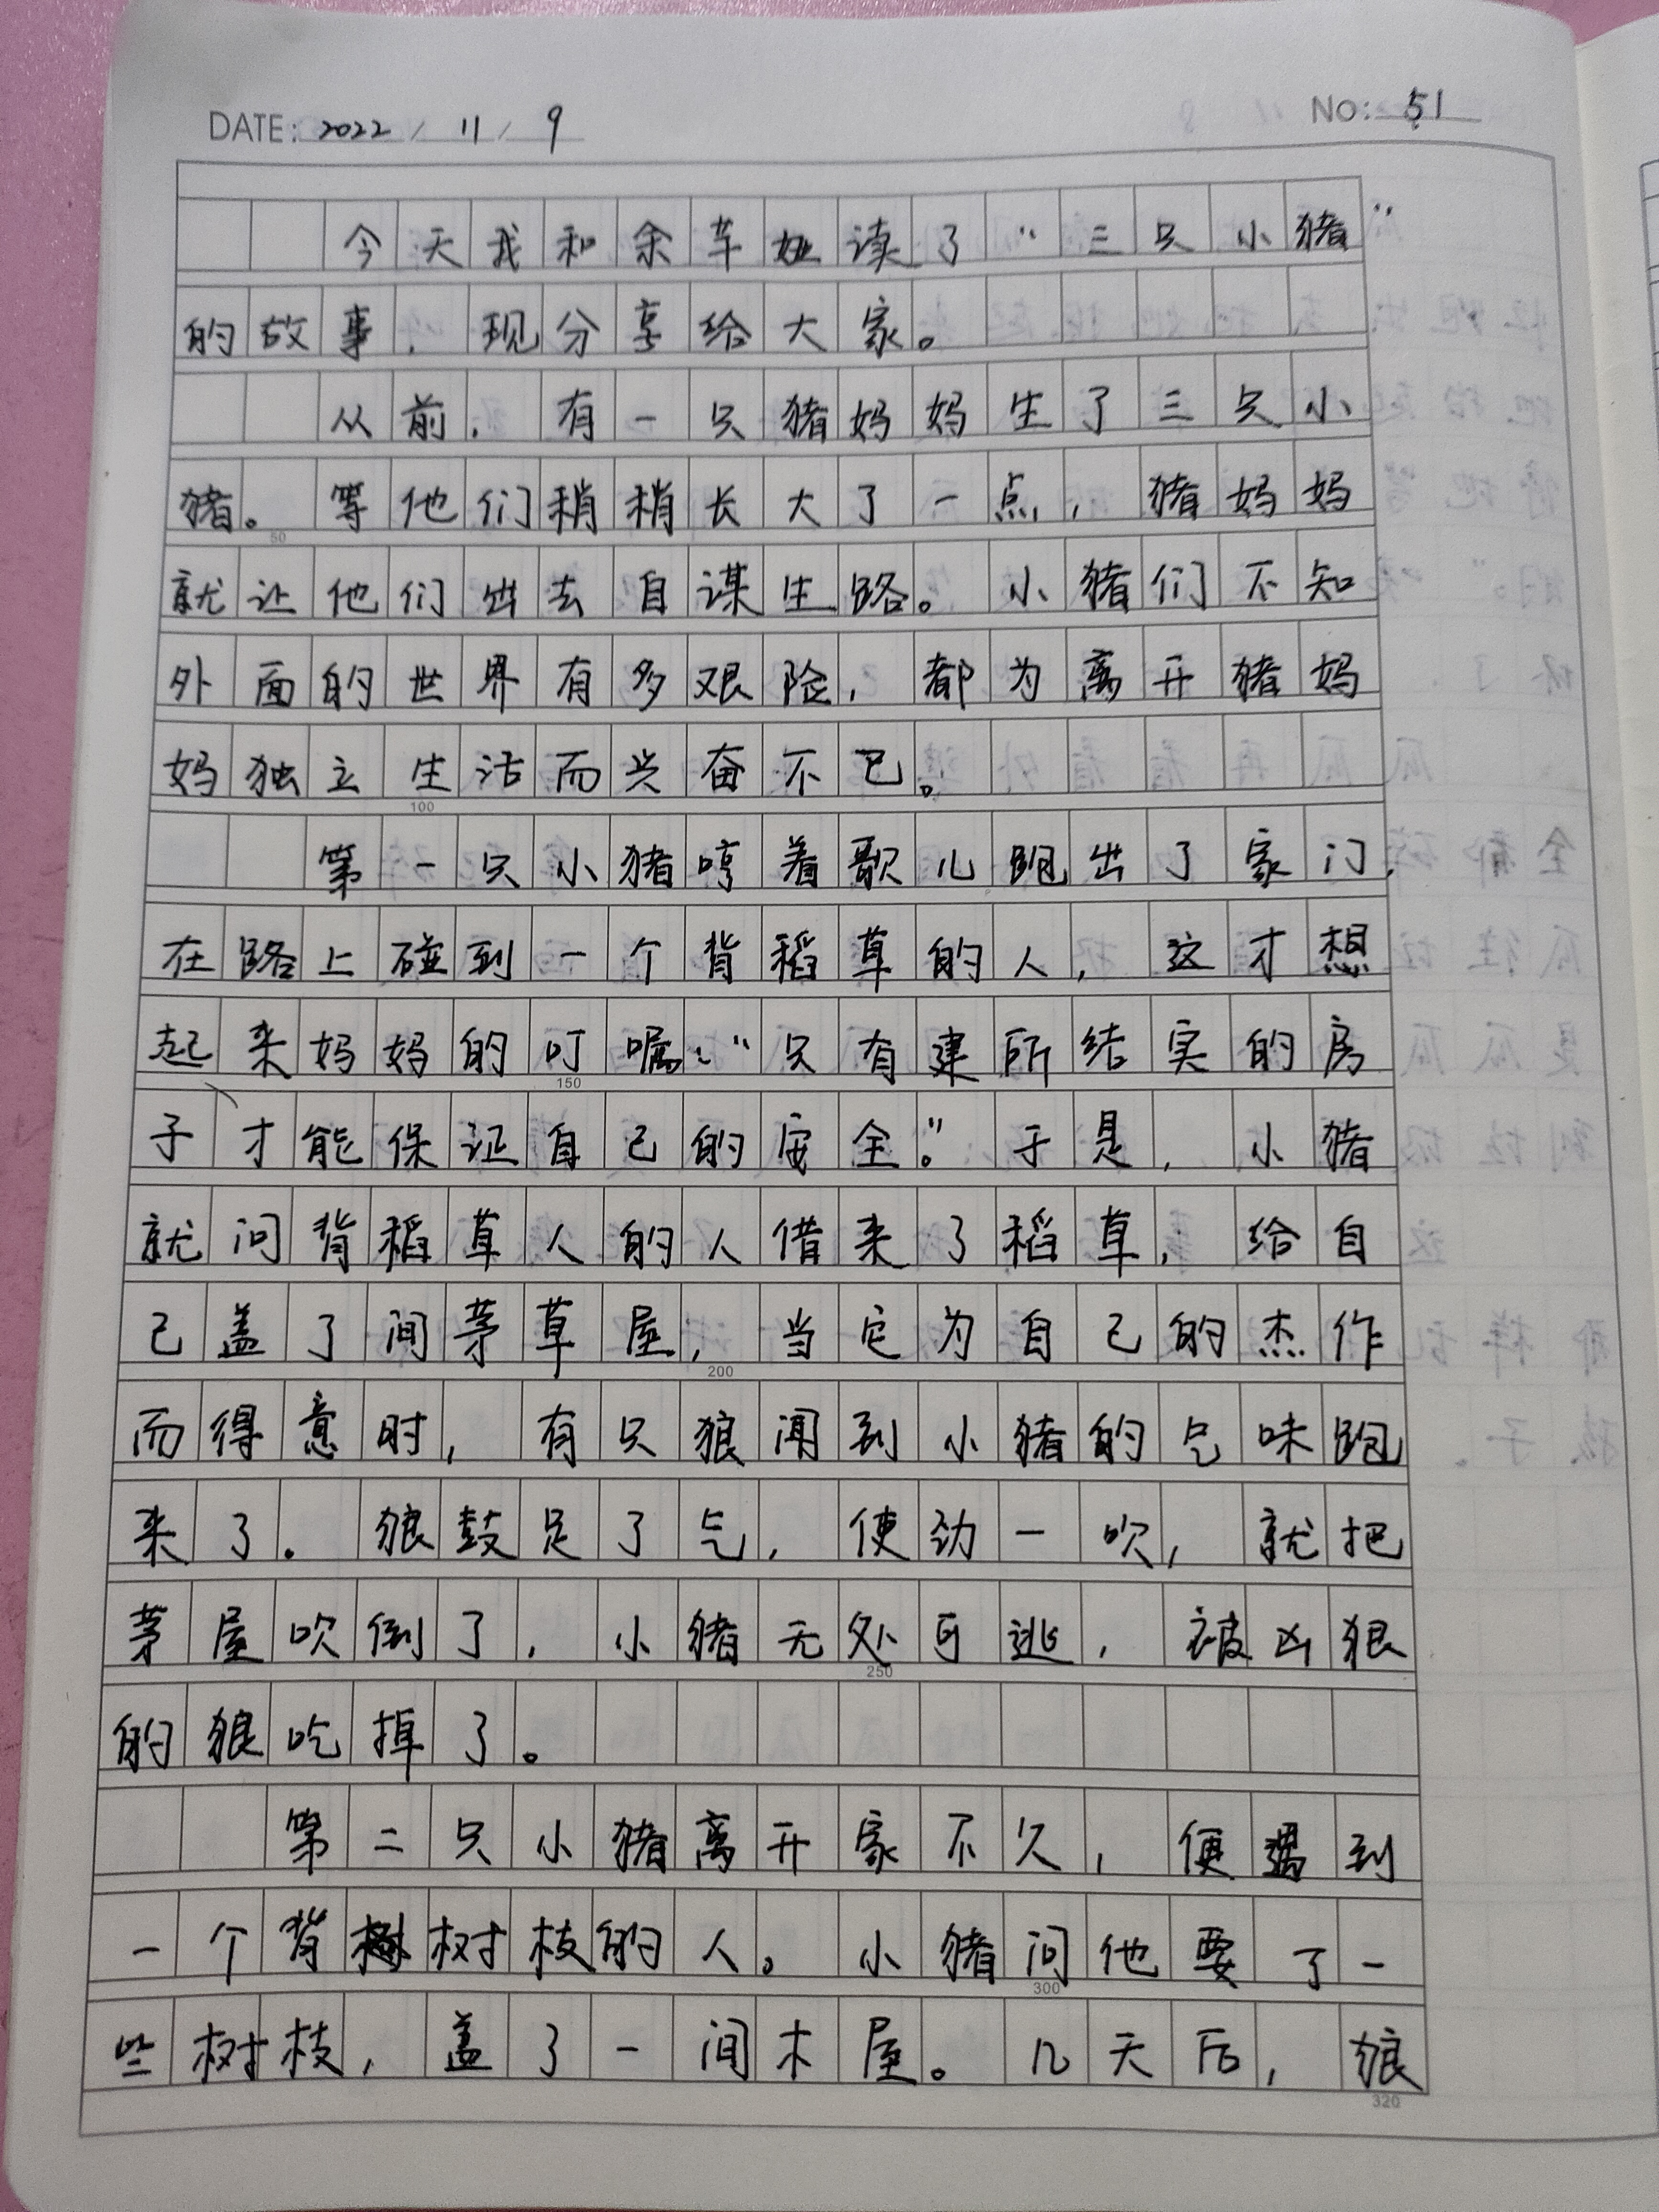 DATE: 2022 / 11 / 9
NO: 51
今天我和余草妞读了“三只小猪”
的故事，现分享给大家。
从前，有一只猪妈妈生了三只小
猪。等他们稍稍长大了一点，猪妈妈
就让他们出去自谋生路。小猪们不知
外面的世界有多艰险，都为离开猪妈
妈独立生活而兴奋不已。
第一只小猪哼着歌儿跑出了家门，
在路上碰到一个背稻草的人，这才想
起来妈妈的叮嘱：“只有建所结实的房
子、才能保证自己的安全。”于是，小猪
就问背稻草人的人借来了稻草，给自
己盖了间茅草屋，当它为自己的杰作
而得意时，有只狼闻到小猪的气味跑
来了。狼鼓足了气，使劲一吹，就把
茅屋吹倒了，小猪无处可逃，被凶狠
的狼吃掉了。
第二只小猪离开家不久，便遇到
一个背树枝的人。小猪问他要了一
些树枝，盖了一间木屋。几天后，狼
50
100
150
200
250
300
320